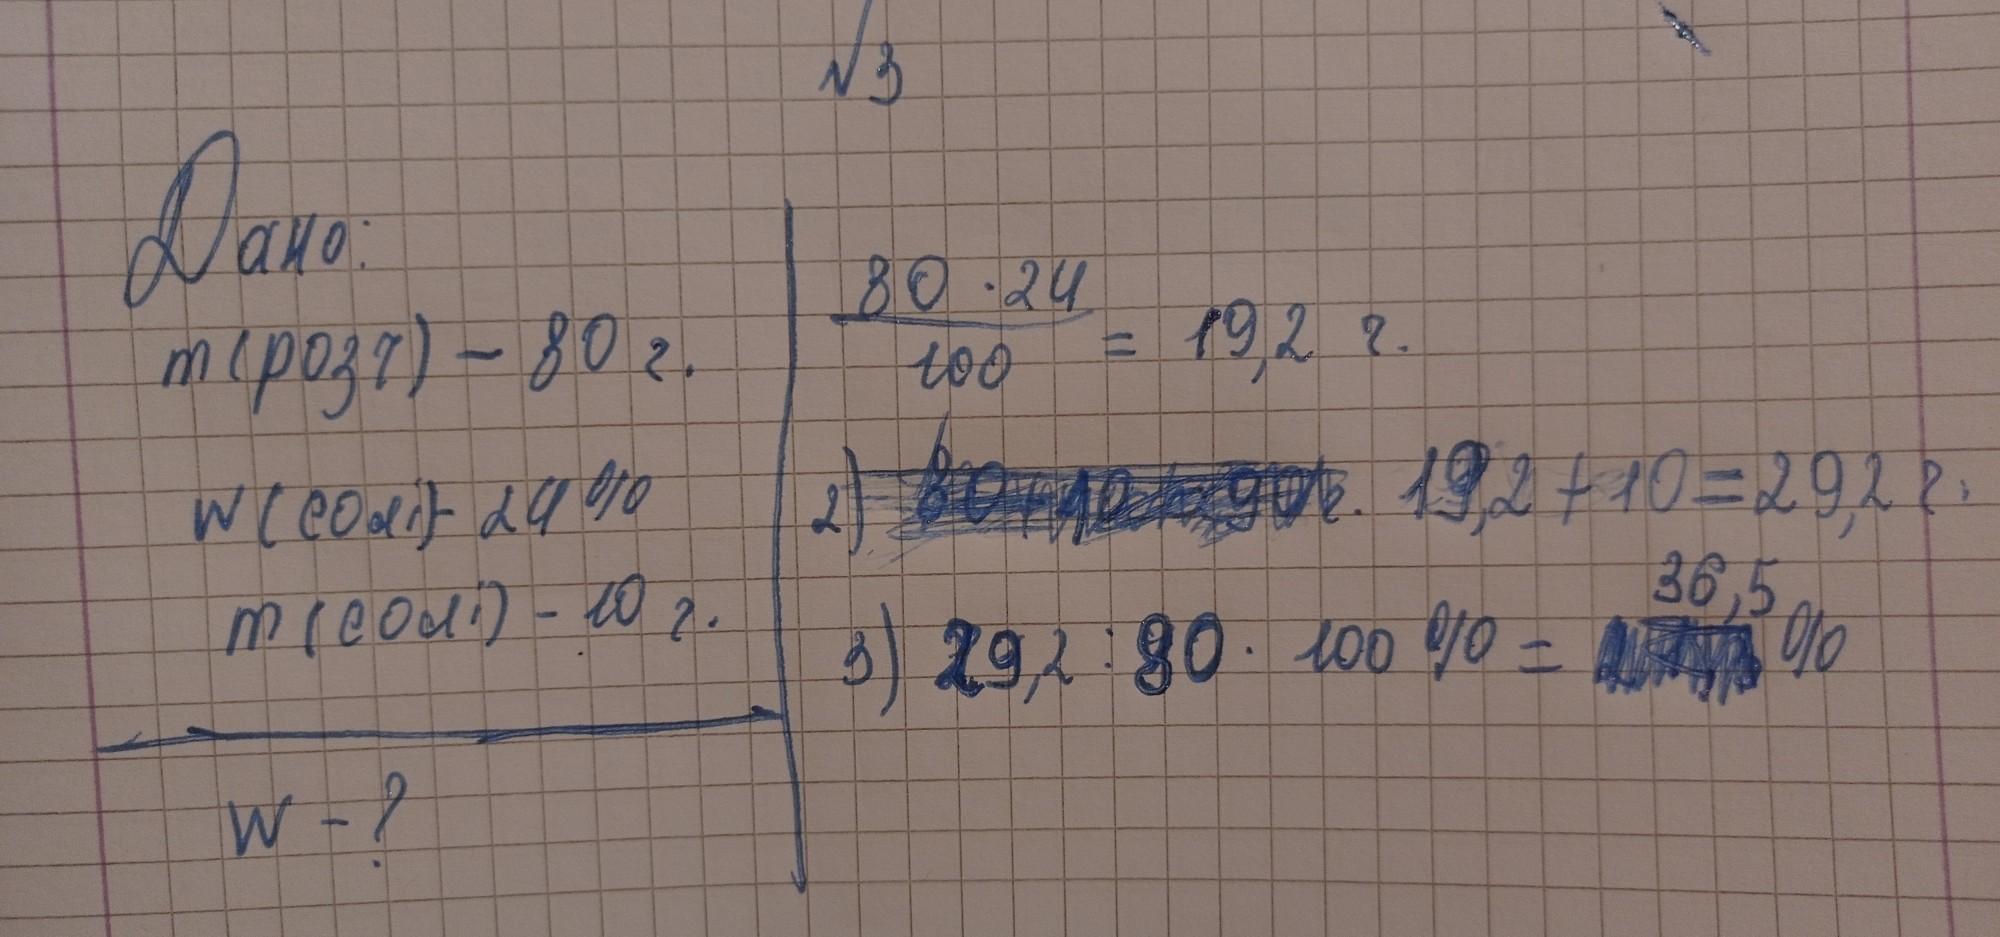 √3
Дано:
m(розч) - 80 г.
w(солі) - 24%
m(солі) - 10 г.
w - ?
80 · 24
100
= 19,2 г.
2) 19,2 + 10 = 29,2 г.
3) 29,2 : 80 · 100% = 36,5 %